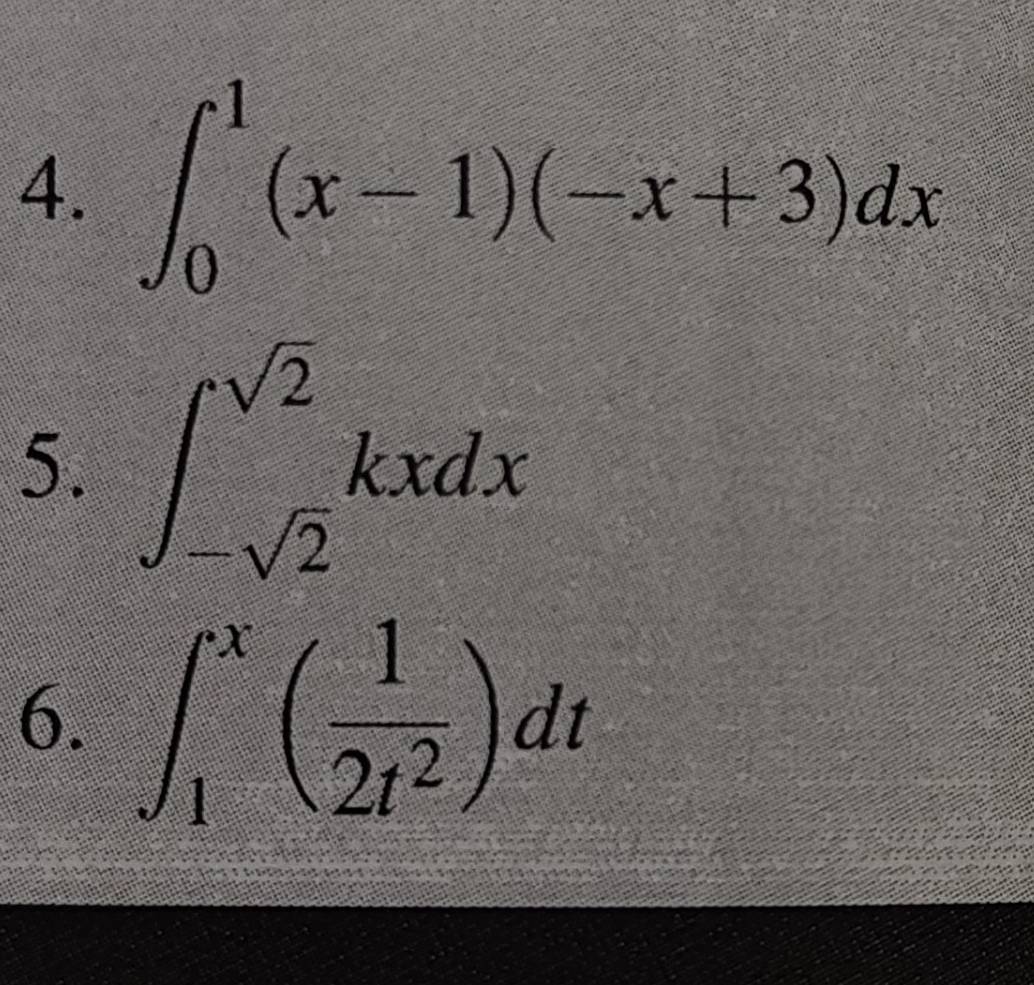 4. ∫₀¹ (x − 1)(−x + 3)dx
5. ∫_{−√2}^{√2} kxdx
6. ∫₁ˣ (1/(2t²)) dt